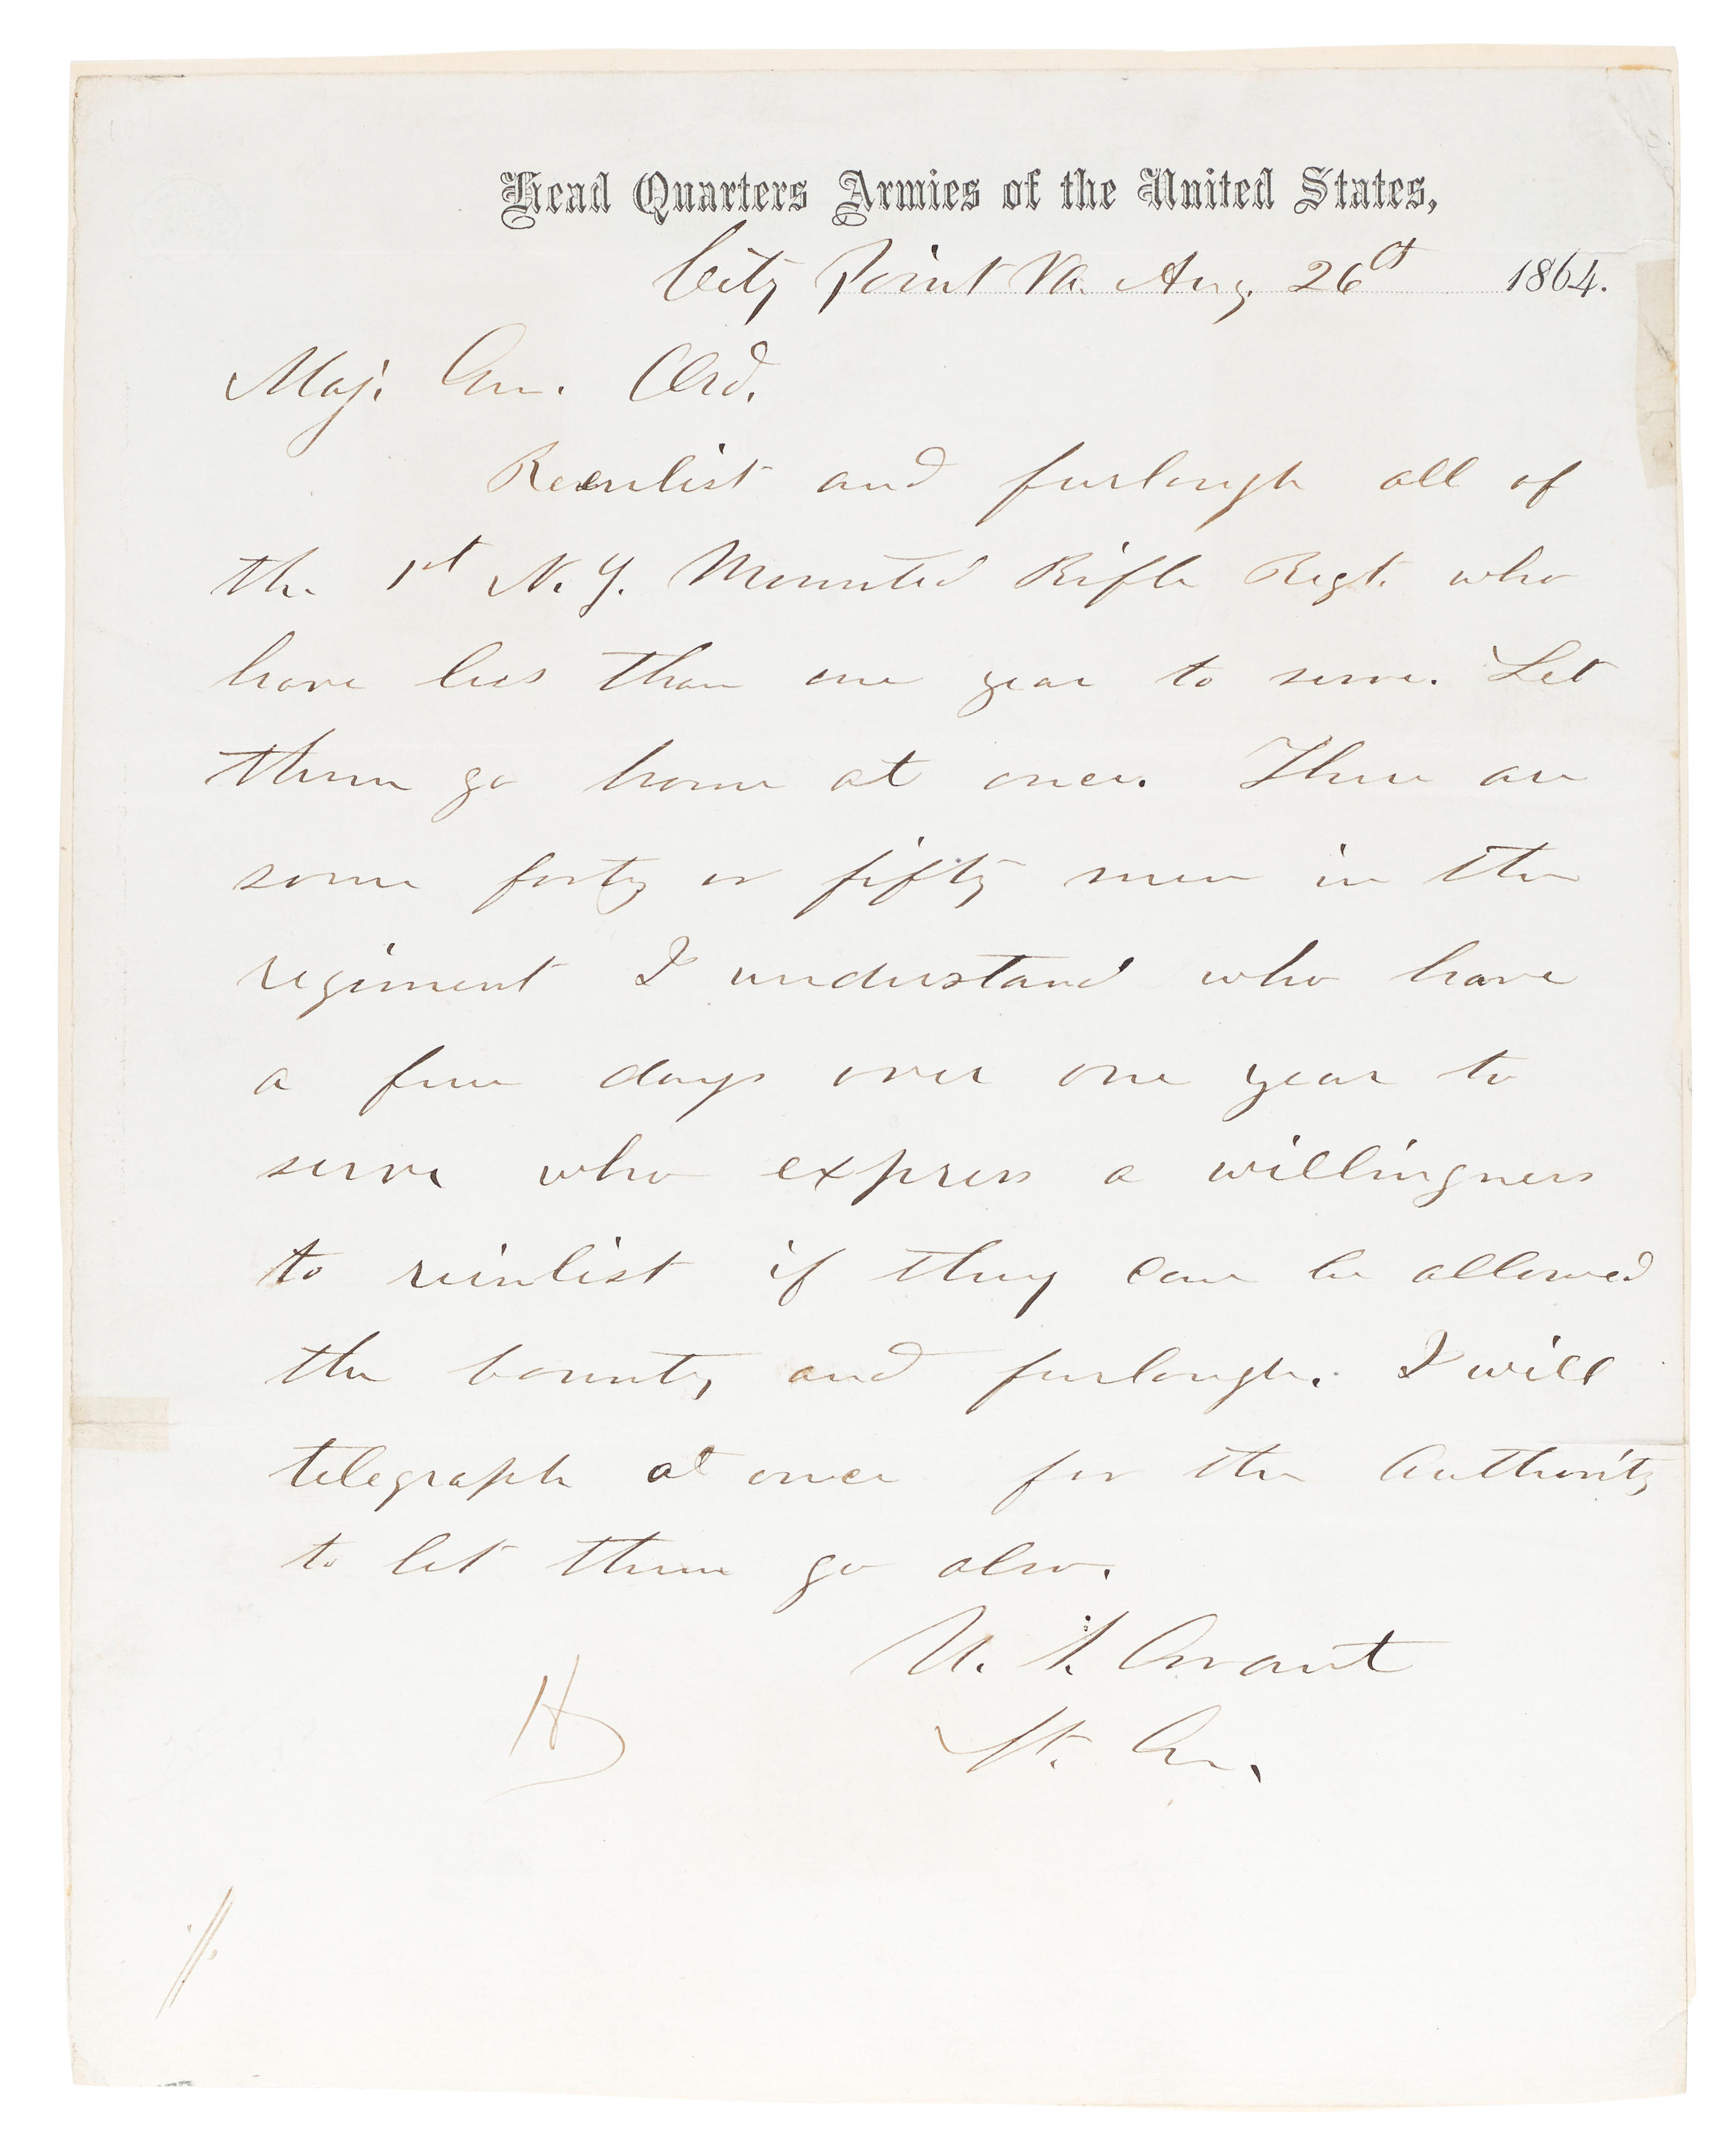 Head Quarters Armies of the United States,
City Point Va. Aug. 26th 1864.
Maj. Gen. Ord.
Reenlist and furlough all of
the 1st N. Y. Mounted Rifle Regt. who
have less than one year to serve. Let
them go home at once. There are
some forty or fifty men in the
regiment I understand who have
a few days over one year to
serve who express a willingness
to reinlist if they can be allowed
the bounty and furlough. I will
telegraph at once for the authority
to let them go also.
U. S. Grant
Lt. Gen.